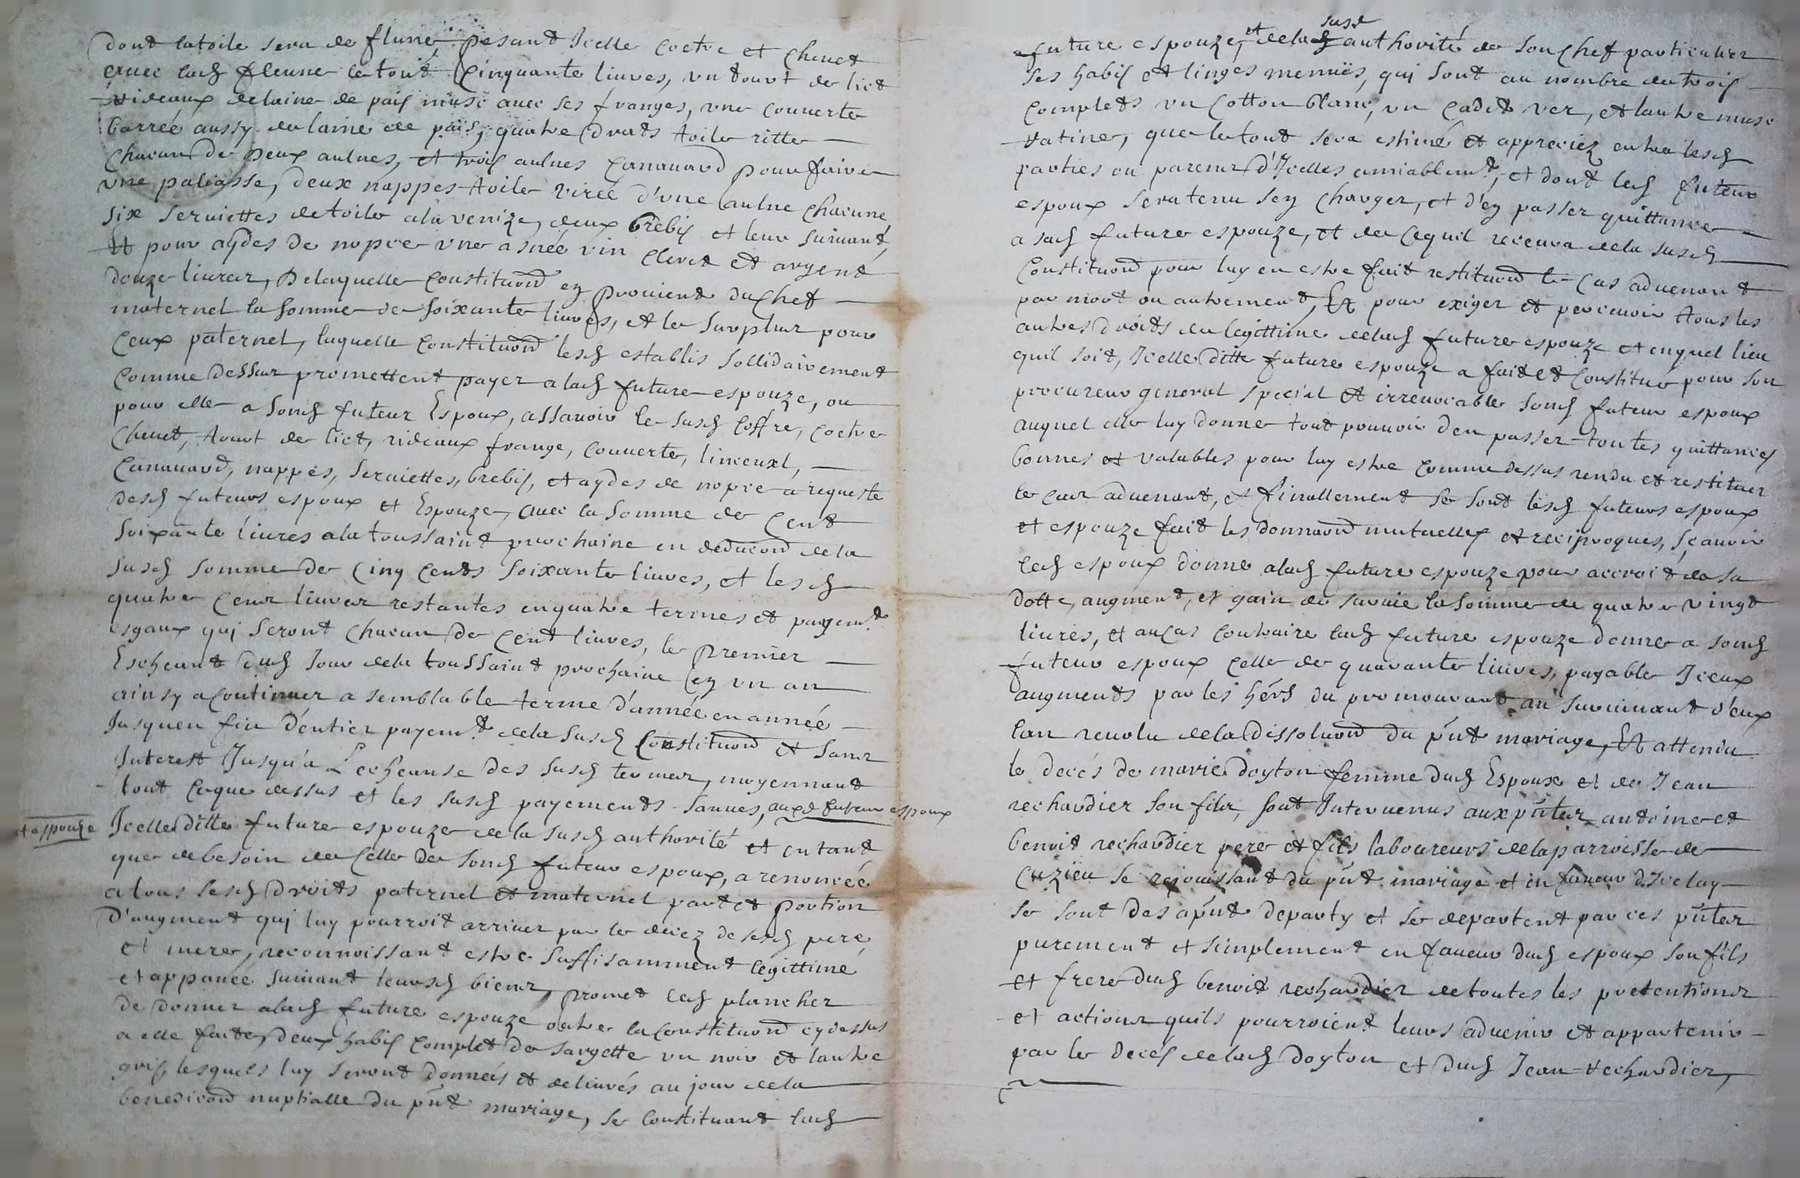 dont latoile sera de flune, pesant Icelle coetre et chevet
avec lad fleune le tout Cinquante livres, un tourt de lict
rideaux de laine de païs musc avec ses franges, une couverte
barrée aussy de laine de païs, quatre draps toile ritte
chacun de deux aulnes, et trois aulnes Canavard pour faire
une paliasse, deux nappes toile virée d'une aulne chacune
six serviettes de toile a la venize, deux brebis et leur suivant,
Et pour aydes de nopce une asnée vin clevet et argent
douze livres, De laquelle Constituon en provient du chef
maternel la somme de soixante livres, et le surplus pour
ceux paternel, laquelle constituon lesd establis sollidairement
comme dessus promettent payer a lad future espouze, ou
pour elle a sond futeur Espoux, assavoir le susd Coffre, coetre
chevet, tourt de lict, rideaux frange, couverte, linceuxl,
Canavard, nappes, serviettes, brebis, et aydes de nopce a requeste
desd futeurs espoux et Espouze, avec la somme de Cent
soixante livres a la toussaint prochaine en deducon de la
susd somme de Cinq Cents soixante livres, et lesd
quatre Cent livres restantes en quatre termes et payemt
esgaux qui seront chacun de Cent livres, le premier
Escheant dud Jour de la toussaint prochaine en un an
ainsy a continuer a semblable terme d'année en année
Jusquen fin d'entier payemt de la susd Constituon et sans
Interest Jusqu'a L'echeanse des susd termes, moyennant
tout ceque dessus et les susd payements sauves, auxd futeur espoux
et espouze Icelle ditte future espouze de la susd authorité et en tant
que de besoin de Celle de sond futeur espoux, a renoncée
a tous sesd droits paternel et maternel part et portion
D'augment qui luy pourroit arriver par le decez de sesd pere
et mere, reconnoissant estre suffisamment legittimé
et appanée suivant leursd biens, promet led plancher
de donner a lad future espouze outre la Constituon cy dessus
a elle faite, deux habis complet de sargette un noir et lautre
gris lesquels luy seront donnés et delivrés au jour de la
benedicon nuptialle du pnt mariage, se Constituant lad
future espouze, et de lad susd authorité de son chef particulier
ses habis et linges menuës, qui sont au nombre de trois
complets un Cotton blanc, un Cadis ver, et lautre musc
ratine, que le tout sera estimé et appreciez entre lesd
parties ou parens d'Icelles amiablemt, et dont led futeur
espoux sera tenu sen charger, et d'en passer quittance
a sad future espouze, et de cequil recevra de la susd
Constituon pour luy en estre fait restituon le cas advenant
par mort ou autrement, Et pour exiger et percevoir tous les
autres droits de legittime de lad future espouze et en quel lieu
quil soit, Icelle ditte future espouze a fait et Constitue pour son
procureur general special et irrevocable sond futeur espoux
auquel elle luy donne tout pouvoir d'en passer toutes quittances
bonnes et valables pour luy estre comme dessus rendu et restituer
le cas advenant, et finallement se sont lesd futeurs espoux
et espouze fait les donnaons mutuelles et reciproques, sçavoir
led espoux donne a lad future espouze pour accroit de sa
dotte, augment, et gain de survie la somme de quatre vingt
livres, et au cas Contraire lad future espouze donne a sond
futeur espoux Celle de quarante livres, payable Iceux
augments par les hers du premourant au survivant d'eux
l'an revolu de la dissoluon du pnt mariage, Et attendu
le decés de marie doyton femme dud Espoux et de Jean
rechardier son fils, sont Intervenus aux pntes antoine et
benoit rechardier pere et fils laboureurs de la parroisse de
Cuzieu se rejouissant du pnt mariage et en faveur d'Icelluy
se sont des apnt departy et se departent par ces pntes
purement et simplement en faveur dud espoux son fils
et frere dud benoit rechardier de toutes les pretentions
et actions quils pourroient leurs advenir et appartenir
par le decés de lad doyton et dud Jean rechardier,